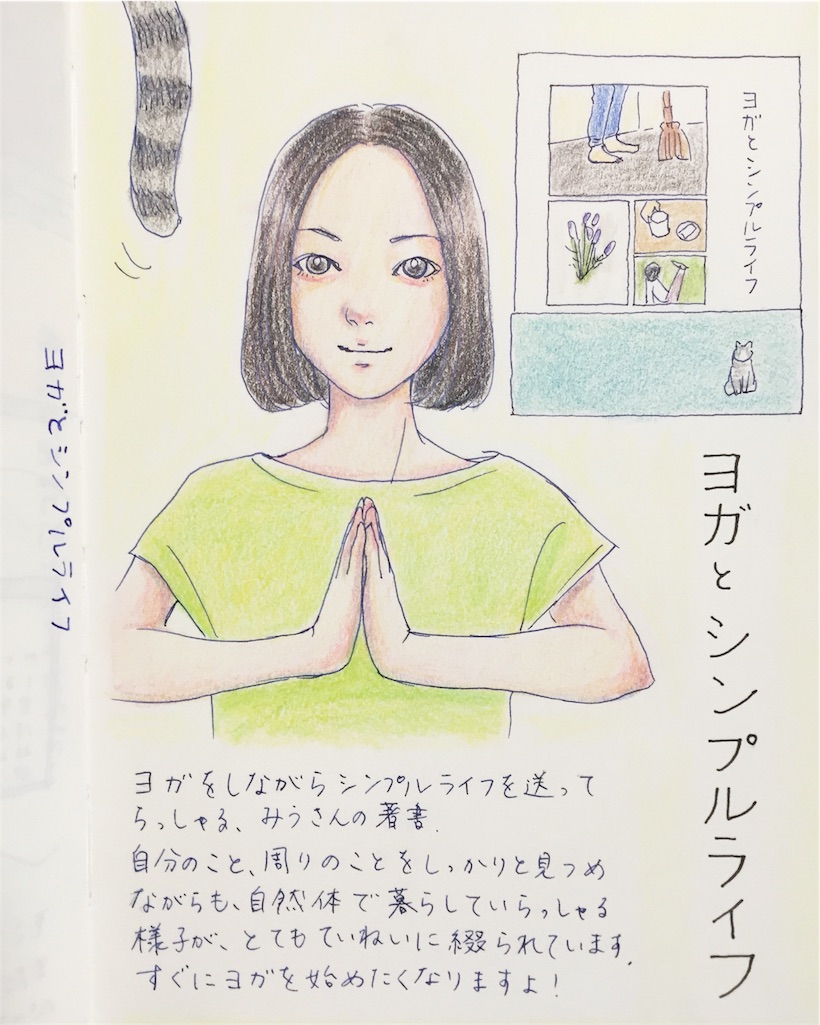 ヨガとシンプルライフ
ヨガとシンプルライフ
ヨガとシンプルライフ
ヨガをしながらシンプルライフを送って
らっしゃる、みうさんの著書.
自分のこと、周りのことをしっかりと見つめ
ながらも、自然体で暮らしていらっしゃる
様子が、とてもていねいに綴られています.
すぐにヨガを始めたくなりますよ！